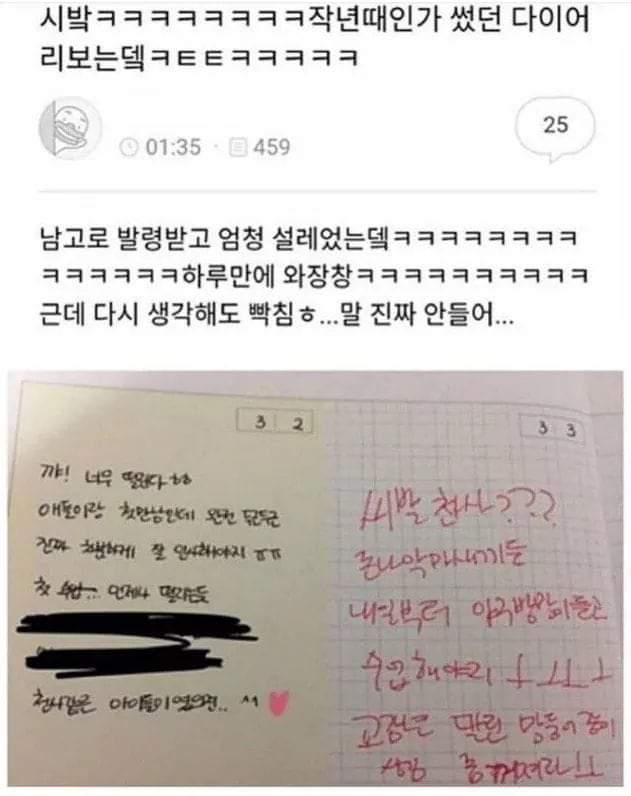 시발ㅋㅋㅋㅋㅋㅋㅋㅋ작년때인가 썼던 다이어
리보는뎈ㅋㅌㅌㅋㅋㅋㅋㅋ
25
01:35 · 459
남고로 발령받고 엄청 설레었는뎈ㅋㅋㅋㅋㅋㅋㅋㅋ
ㅋㅋㅋㅋㅋㅋㅋ하루만에 와장창ㅋㅋㅋㅋㅋㅋㅋㅋㅋㅋ
근데 다시 생각해도 빡침ㅎ...말 진짜 안들어...
3 2
꺄! 너무 떨린다ㅎㅎ
애들이랑 첫만남인데 완전 두근두근
진짜 친하게 잘 인사해야지 ㅠㅠ
첫 수업... 언제나 떨리는듯
천사같은 아이들이였으면.. ^^
3 3
씨발 천사???
존나 악마새끼들
내일부터 야구방망이들고
수업해야지
교장은 말린 망둥어 종이